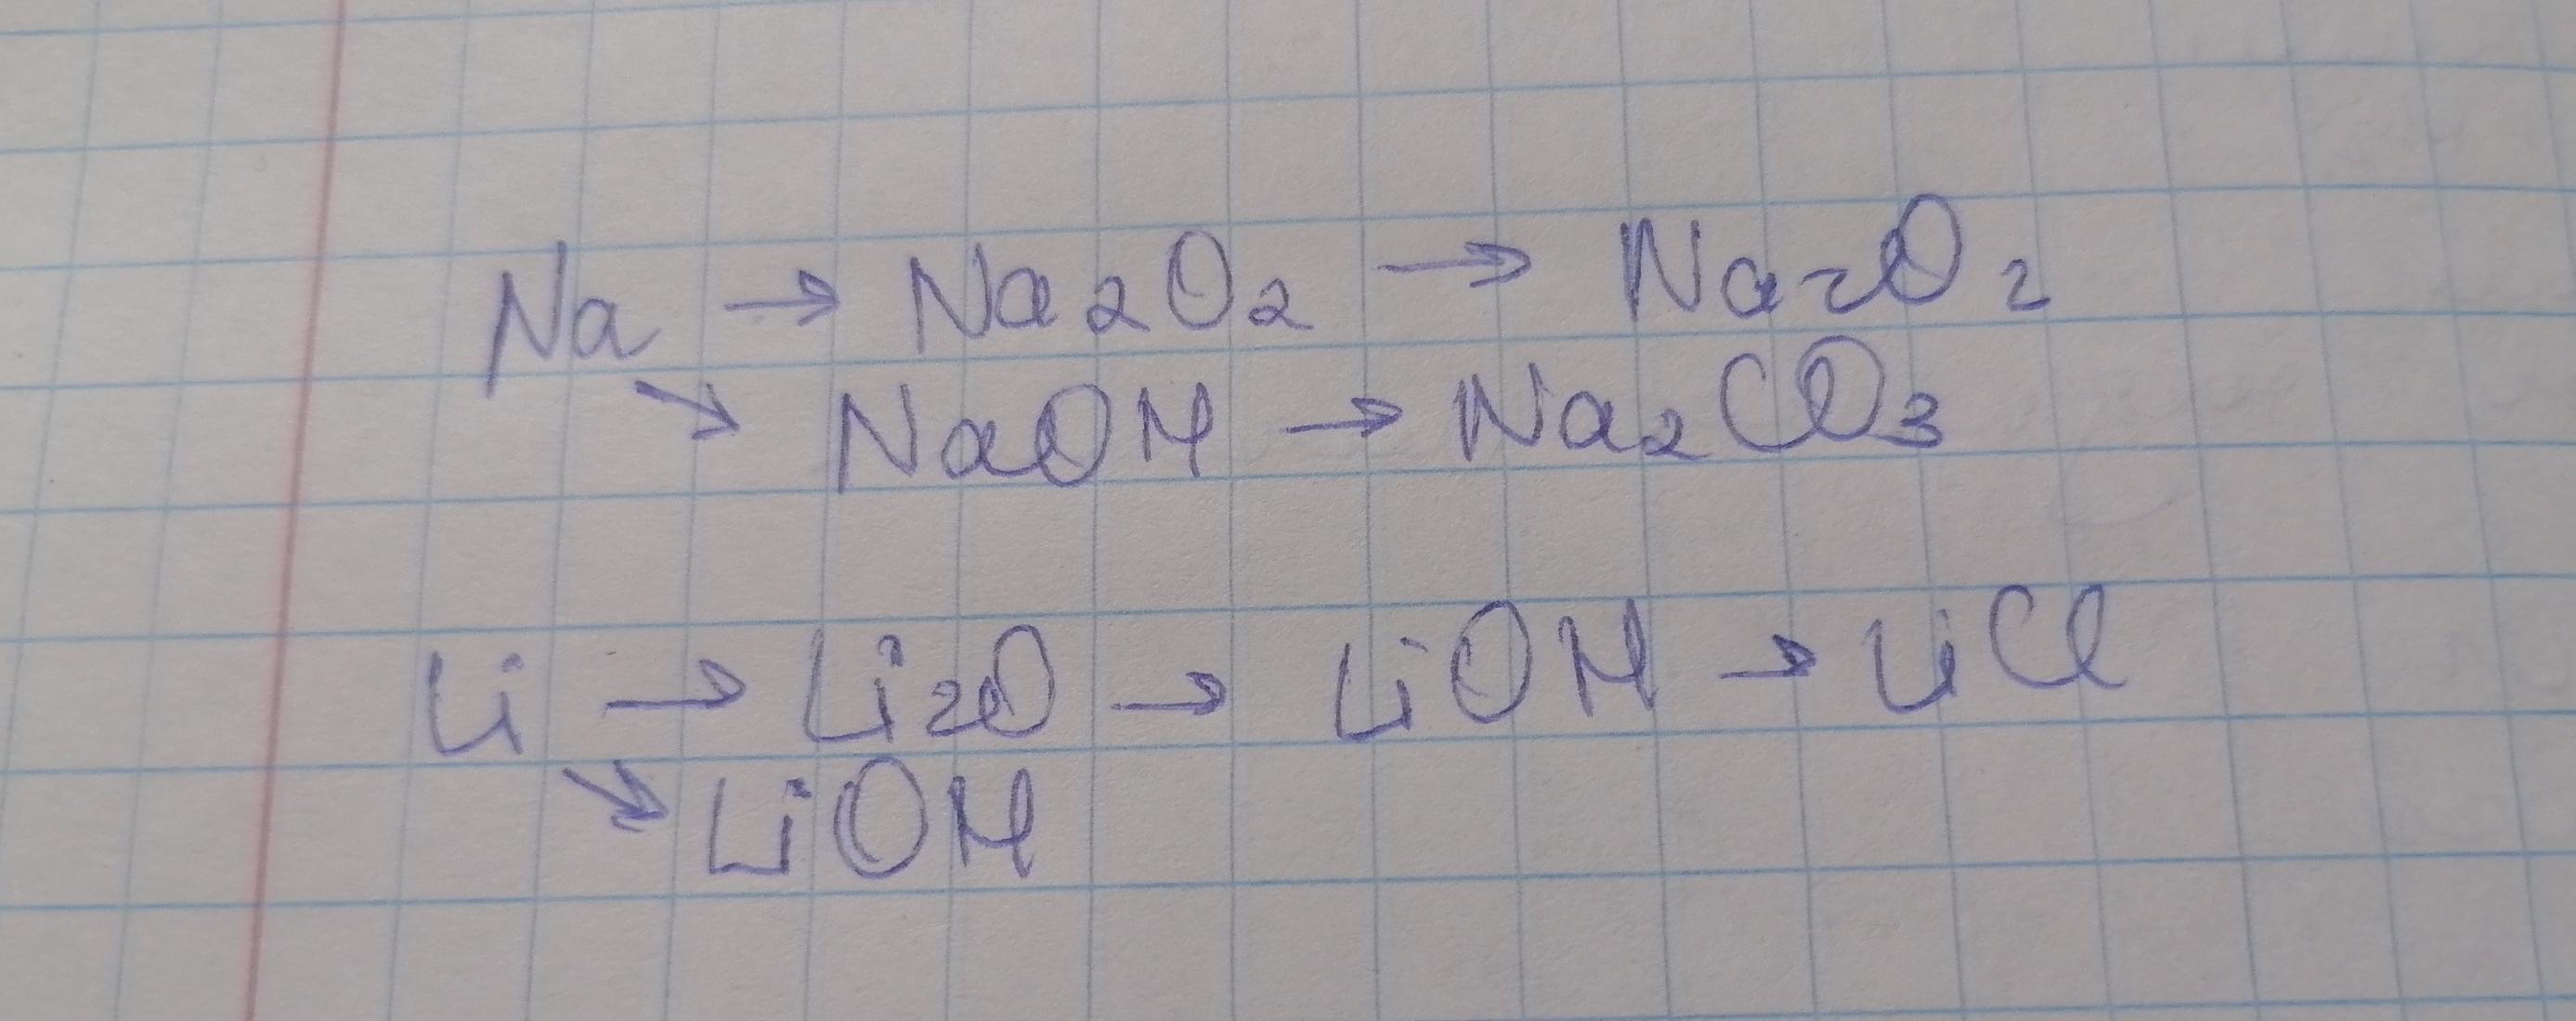 Na → Na₂O₂ → Na₂O₂
↘ NaOH → Na₂CO₃
Li → Li₂O → LiOH → LiCl
↘ LiOH